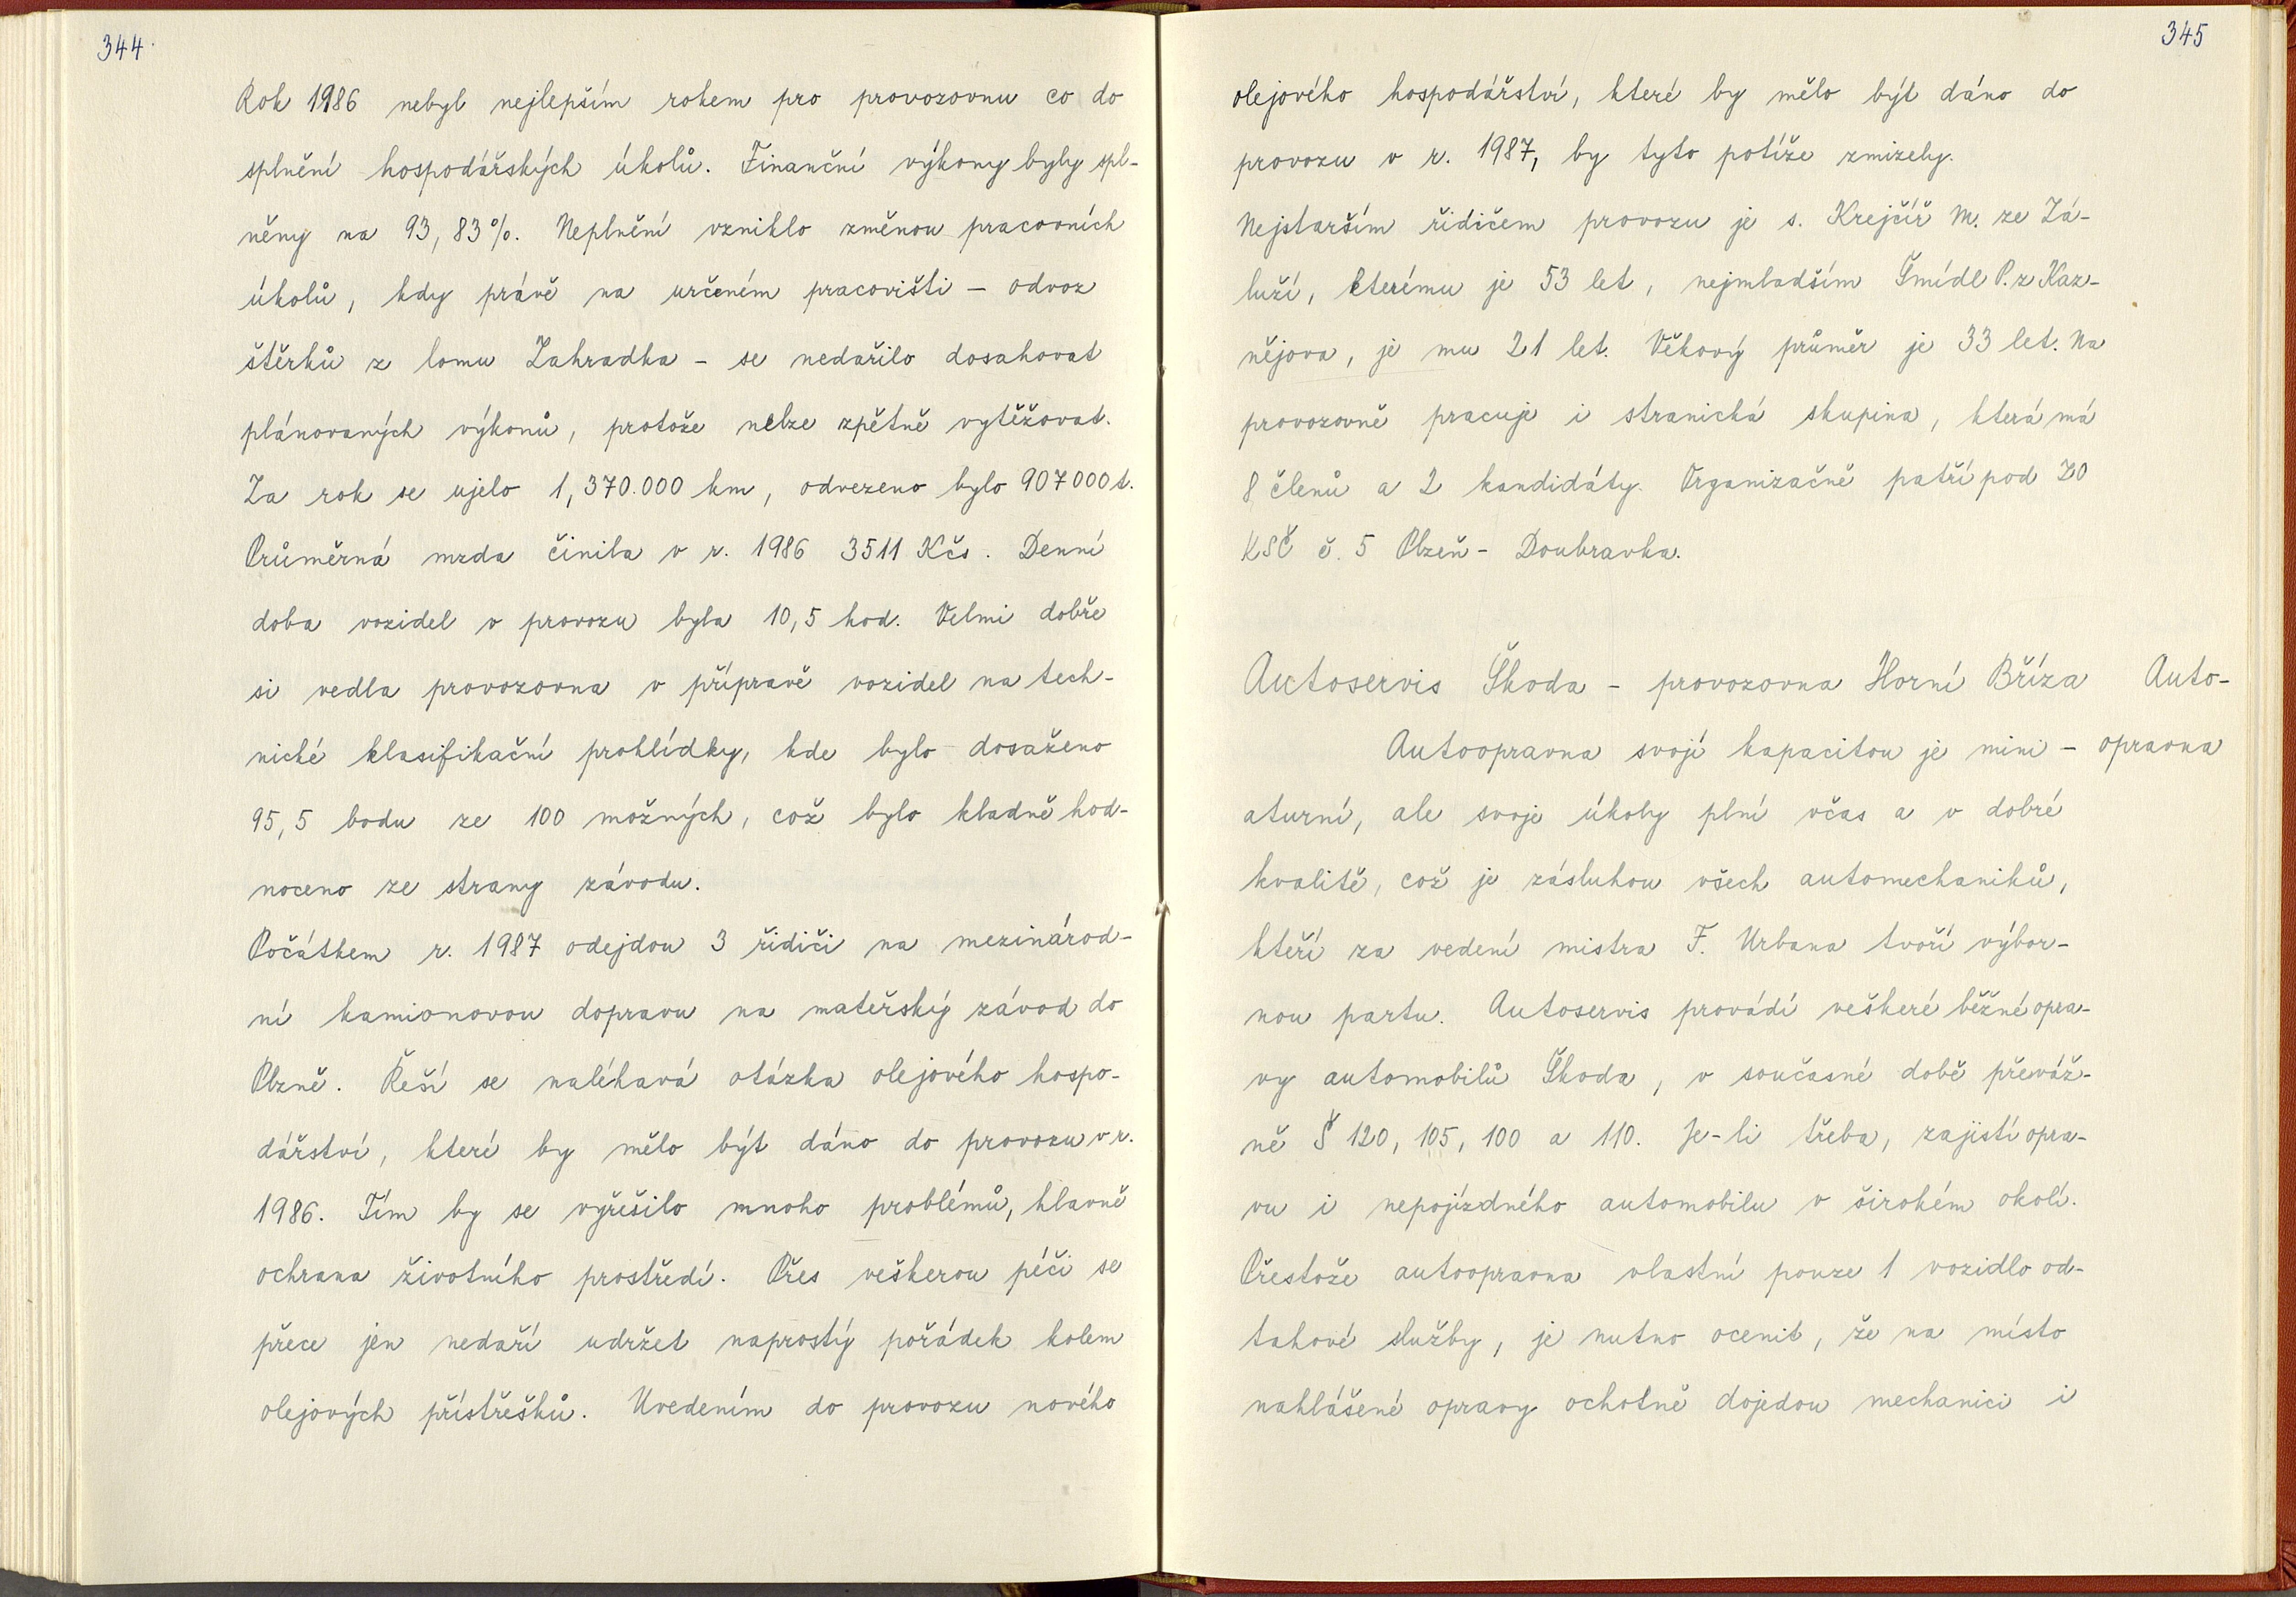 344
Rok 1986 nebyl nejlepším rokem pro provozovnu co do
splnění hospodářských úkolů. Finanční výkony byly spl-
něny na 93,83%. Neplnění vzniklo změnou pracovních
úkolů, kdy právě na určeném pracovišti - odvoz
štěrků z lomu Zahradka - se nedařilo dosahovat
plánovaných výkonů, protože nelze zpětně vytěžovat.
Za rok se ujelo 1,370.000 km, odvezeno bylo 907000t.
Průměrná mzda činila v r. 1986 3511 Kčs. Denní
doba vozidel v provozu byla 10,5 hod. Velmi dobře
si vedla provozovna v přípravě vozidel na tech-
nické klasifikační prohlídky, kde bylo dosaženo
95,5 bodu ze 100 možných, což bylo kladně hod-
noceno ze strany závodu.
Počátkem r. 1987 odejdou 3 řidiči na mezinárod-
ní kamionovou dopravu na mateřský závod do
Plzně. Řeší se naléhavá otázka olejového hospo-
dářství, které by mělo být dáno do provozu v r.
1986. Tím by se vyřešilo mnoho problémů, hlavně
ochrana životního prostředí. Přes veškerou péči se
přece jen nedaří udržet naprostý pořádek kolem
olejových přístřešků. Uvedením do provozu nového
345
olejového hospodářství, které by mělo být dáno do
provozu v r. 1987, by tyto potíže zmizely.
Nejstarším řidičem provozu je s. Krejčíř M. ze Zá-
luží, kterému je 53 let, nejmladším Šmídl P. z Kaz-
nějova, je mu 21 let. Věkový průměr je 33 let. Na
provozovně pracuje i stranická skupina, která má
8 členů a 2 kandidáty. Organizačně patří pod ZO
KSČ č. 5 Plzeň - Doubravka.
Autoservis Škoda - provozovna Horní Bříza
Auto-
opravna
Autoopravna svojí kapacitou je mini-
aturní, ale svoje úkoly plní včas a v dobré
kvalitě, což je zásluhou všech automechaniků,
kteří za vedení mistra F. Urbana tvoří výbor-
nou partu. Autoservis provádí veškeré běžné opra-
vy automobilů Škoda, v současné době převáž-
ně Š 120, 105, 100 a 110. Je-li třeba, zajistí opra-
vu i nepojízdného automobilu v širokém okolí.
Přestože autoopravna vlastní pouze 1 vozidlo od-
tahové služby, je nutno ocenit, že na místo
nahlášené opravy ochotně dojedou mechanici i